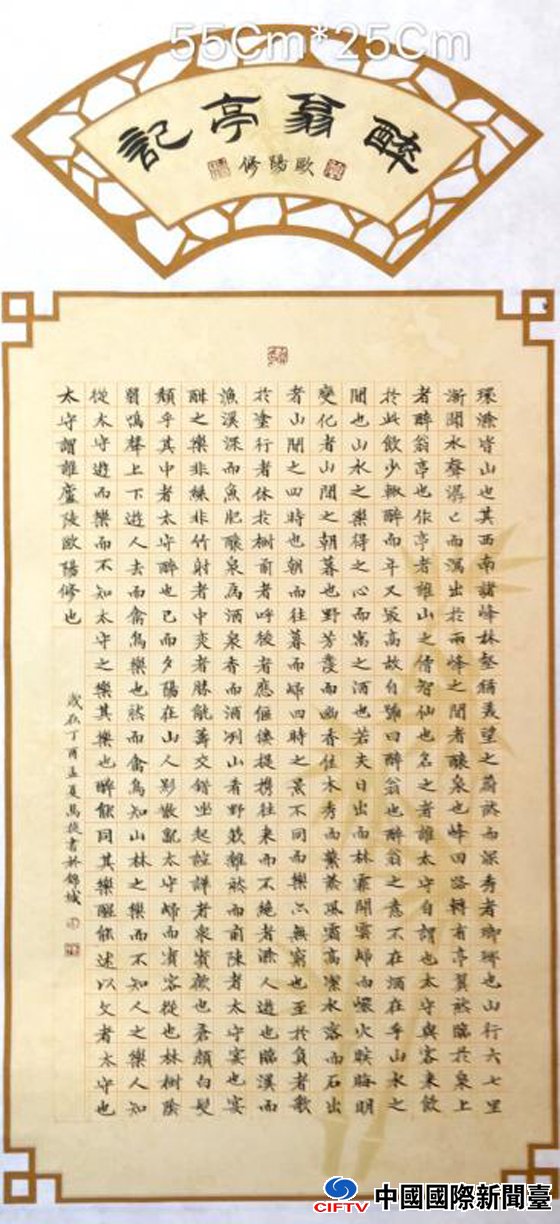 55Cm*25Cm
醉翁亭記
歐陽脩
環滁皆山也其西南諸峰林壑猶美望之蔚然而深秀者瑯琊也山行六七里
漸聞水聲潺〻而瀉出於兩峰之間者釀泉也峰回路轉有亭翼然臨於泉上
者醉翁亭也作亭者誰山之僧智仙也名之者誰太守自謂也太守與客來飲
於此飲少輒醉而年又最高故自號曰醉翁也醉翁之意不在酒在乎山水之
間也山水之樂得之心而寓之酒也若夫日出而林霏開雲歸而巖穴暝晦明
變化者山間之朝暮也野芳發而幽香佳木秀而繁蔭風霜高潔水落而石出
者山間之四時也朝而往暮而歸四時之景不同而樂亦無窮也至於負者歌
於塗行者休於樹前者呼後者應傴僂提攜往來而不絕者滁人遊也臨溪而
漁溪深而魚肥釀泉為酒泉香而酒冽山肴野蔌雜然而前陳者太守宴也宴
酣之樂非絲非竹射者中奕者勝觥籌交錯坐起諠譁者眾賓歡也蒼顏白髮
頹乎其中者太守醉也已而夕陽在山人影散亂太守歸而賓客從也林樹陰
翳鳴聲上下遊人去而禽鳥樂也然而禽鳥知山林之樂而不知人之樂人知
從太守遊而樂而不知太守之樂其樂也醉能同其樂醒能述以文者太守也
太守謂誰廬陵歐陽脩也
歲在丁酉孟夏馬書於錦城
CIFTV 中國國際新聞臺